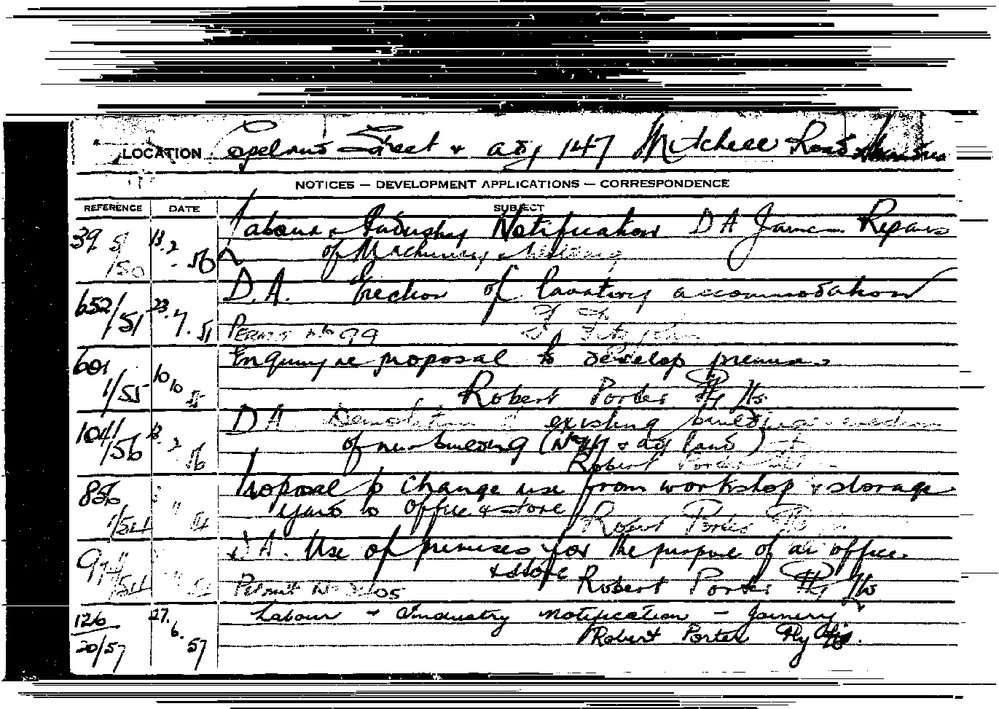 LOCATION Copeland Street & adj 147 Mitchell Road
NOTICES — DEVELOPMENT APPLICATIONS — CORRESPONDENCE
REFERENCE DATE SUBJECT
39 51/50 13.2.56 Labour & Industry Notification DA Repairs
of Machinery
652/51 23.7.51 D.A. Erection of lavatory accommodation
Permit No 99
601 1/55 10 10 55 Enquiry re proposal to develop premises
Robert Porter Pty Ltd
1041/56 13.2.56 DA Demolition existing building
of new building (No 147 & adj land)
Robert Porter
856 1/54 " Proposal to change use from workshop & storage
yard to Office & store Robert Porter
D.A. Use of premises for the purpose of an office
& store
Permit No 05 Robert Porter Pty Ltd
126 20/57 27.6.57 Labour & Industry notification - Joinery
Robert Porter Pty Ltd.